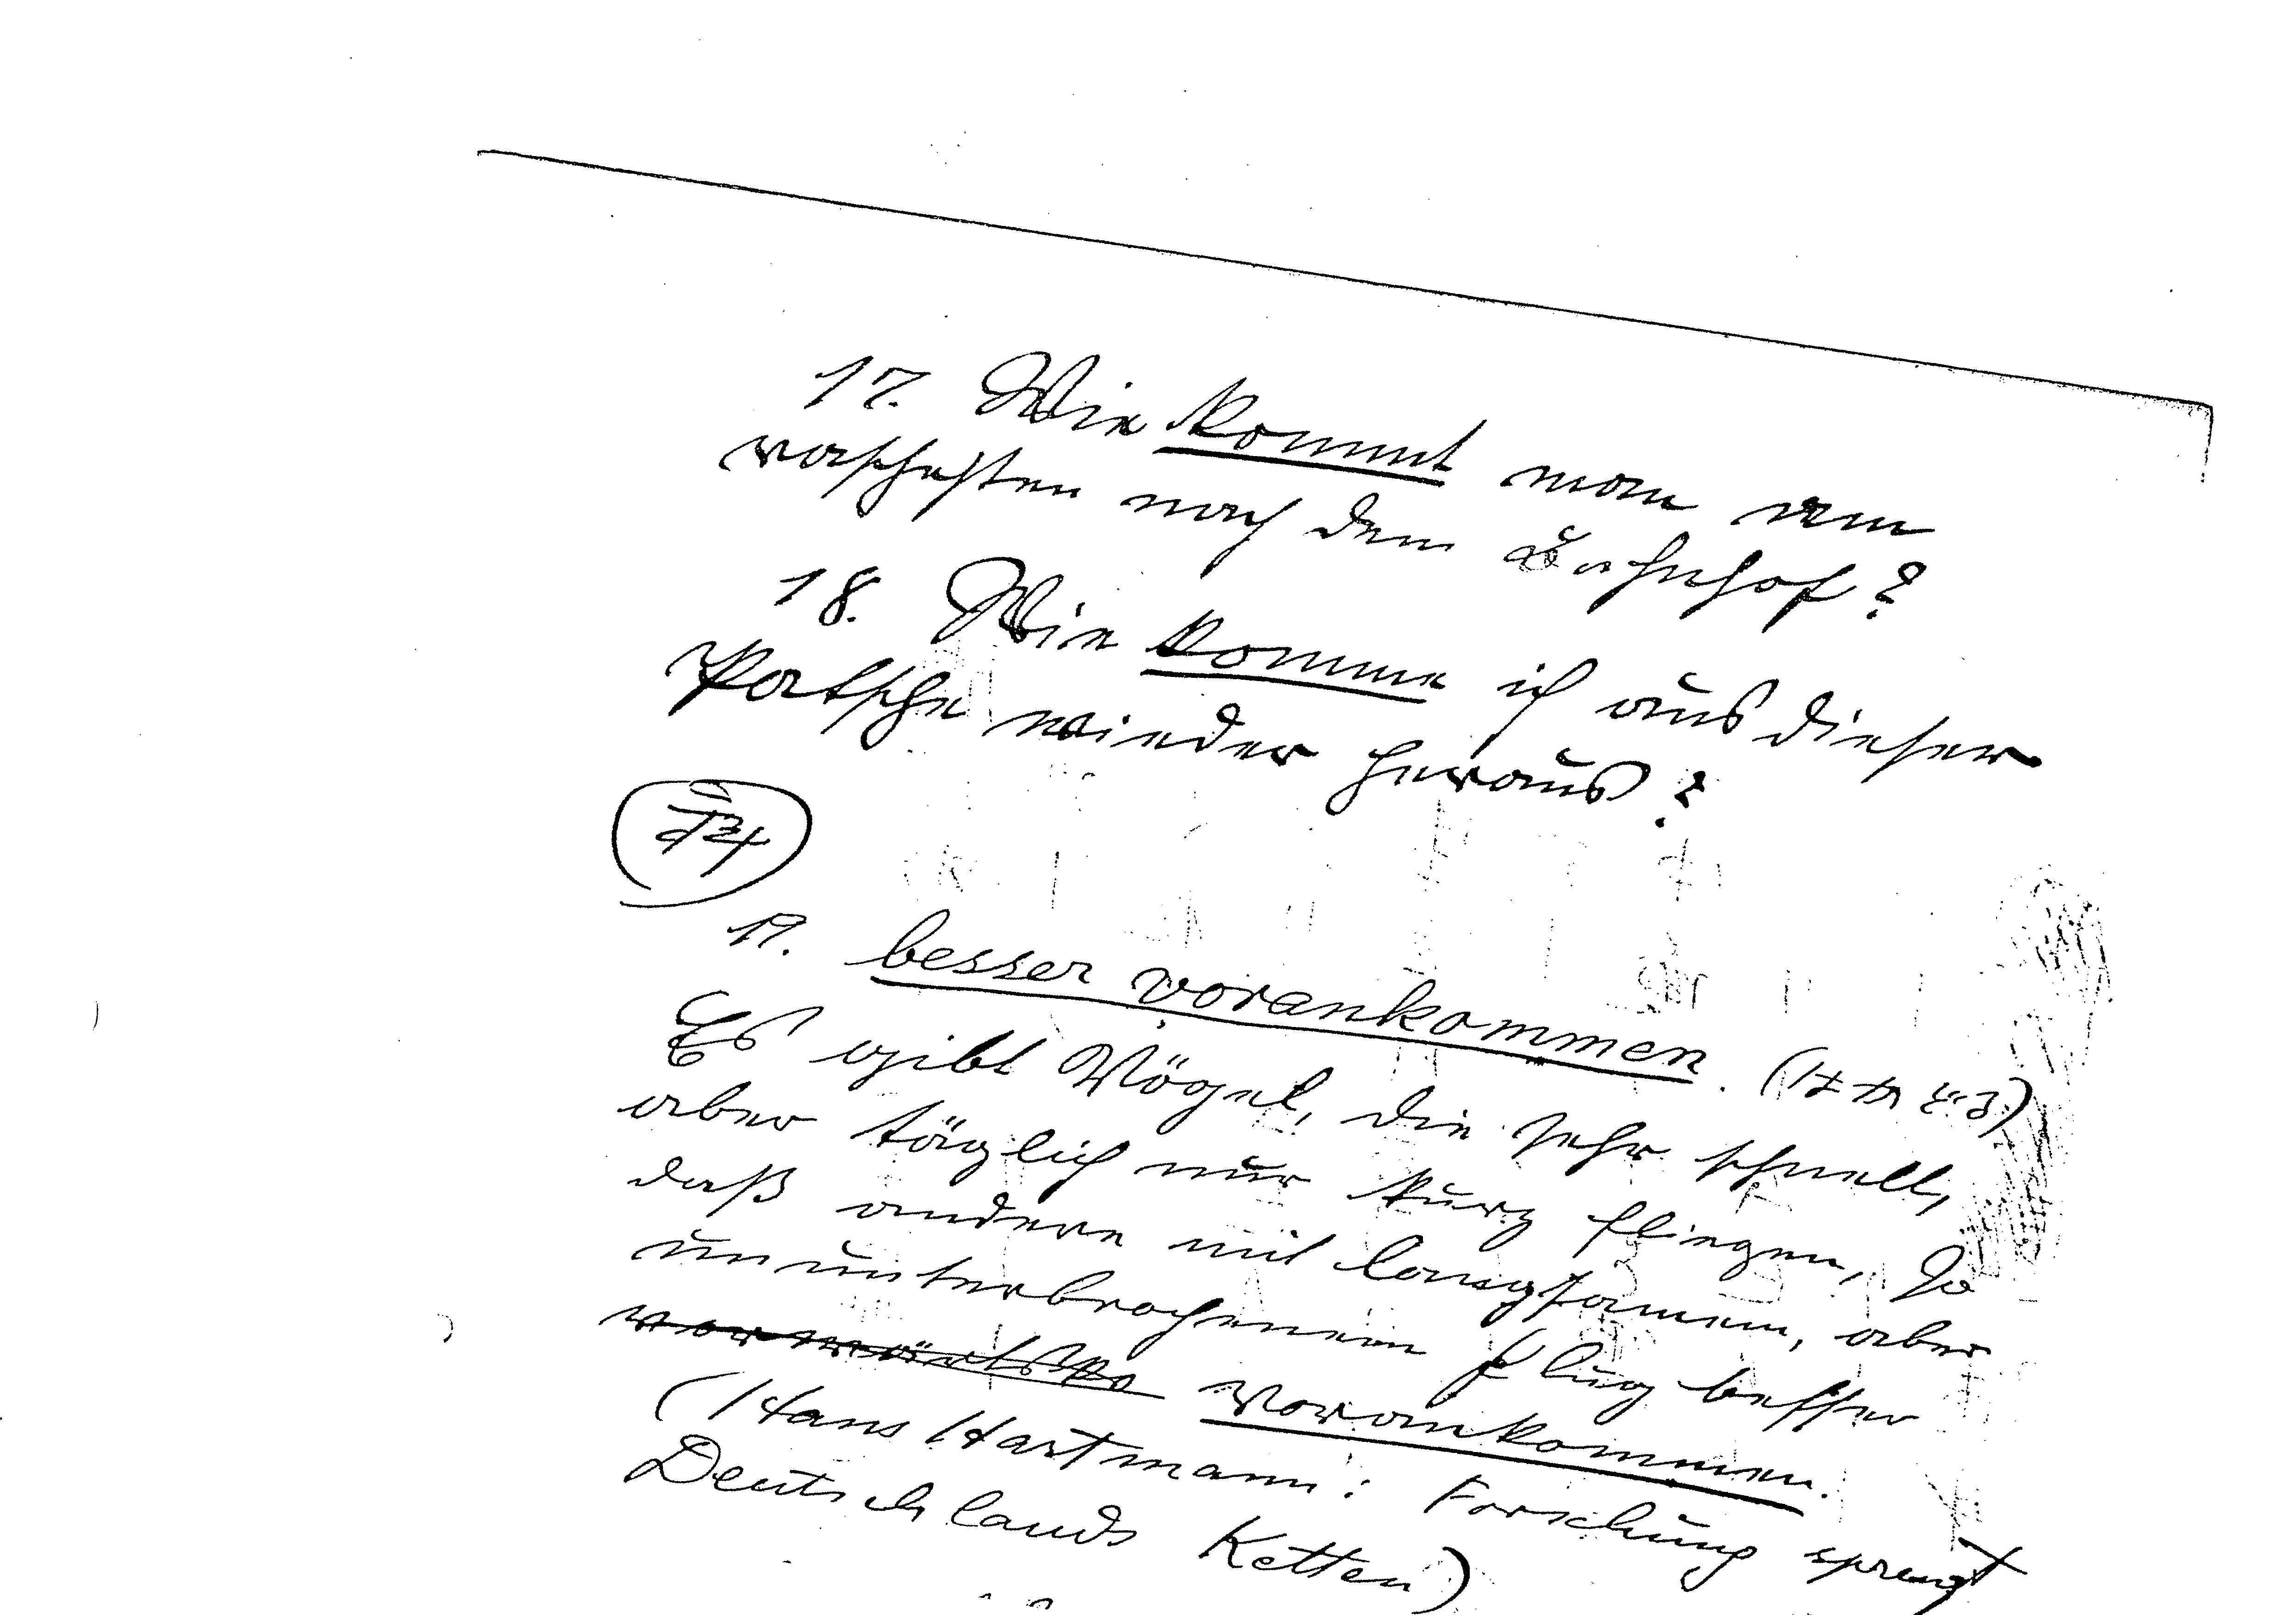 17. Wie kommt man am
raschesten nach dem Bahnhof?
18. Wie komme ich aus dieser
Patsche wieder heraus?
19. besser vorankommen.
Es gibt Vögel, die sehr schnell,
aber täglich nur kurz fliegen, so
daß andere mit langsamem, aber
ununterbrochenem Flug besser
vorankommen.
(Hans Hartmann: Forschung sprengt
Deutschlands Ketten)